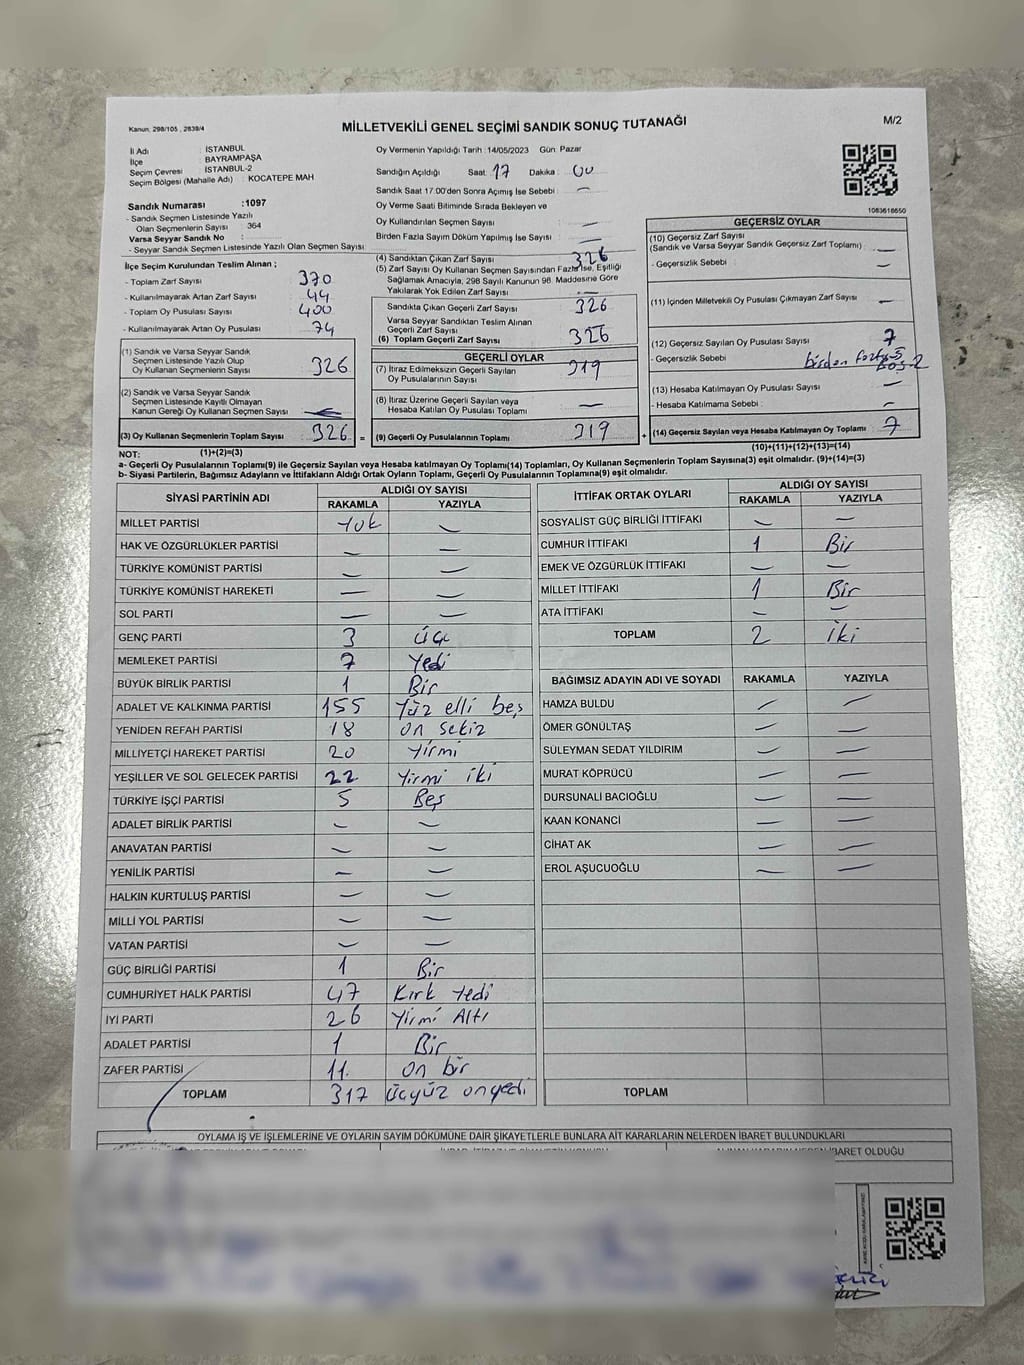 Kanun; 298/105 , 2839/4
MİLLETVEKİLİ GENEL SEÇİMİ SANDIK SONUÇ TUTANAĞI
M/2
İl Adı : İSTANBUL
İlçe : BAYRAMPAŞA
Seçim Çevresi : İSTANBUL-2
Seçim Bölgesi (Mahalle Adı) : KOCATEPE MAH
Sandık Numarası :1097
- Sandık Seçmen Listesinde Yazılı
Olan Seçmenlerin Sayısı : 364
Varsa Seyyar Sandık No :
- Seyyar Sandık Seçmen Listesinde Yazılı Olan Seçmen Sayısı :
Oy Vermenin Yapıldığı Tarih :14/05/2023 Gün: Pazar
Sandığın Açıldığı Saat: 17 Dakika: 00
Sandık Saat 17.00'den Sonra Açımış İse Sebebi : —
Oy Verme Saati Bitiminde Sırada Bekleyen ve
Oy Kullandırılan Seçmen Sayısı : —
Birden Fazla Sayım Döküm Yapılmış İse Sayısı : —
1083618650
İlçe Seçim Kurulundan Teslim Alınan ;
- Toplam Zarf Sayısı : 370
- Kullanılmayarak Artan Zarf Sayısı : 44
- Toplam Oy Pusulası Sayısı : 400
- Kullanılmayarak Artan Oy Pusulası : 74
(1) Sandık ve Varsa Seyyar Sandık
Seçmen Listesinde Yazılı Olup
Oy Kullanan Seçmenlerin Sayısı : 326
(2) Sandık ve Varsa Seyyar Sandık
Seçmen Listesinde Kayıtlı Olmayan
Kanun Gereği Oy Kullanan Seçmen Sayısı : —
(3) Oy Kullanan Seçmenlerin Toplam Sayısı : 326 =
(4) Sandıktan Çıkan Zarf Sayısı : 326
(5) Zarf Sayısı Oy Kullanan Seçmen Sayısından Fazla İse, Eşitliği
Sağlamak Amacıyla, 298 Sayılı Kanunun 98. Maddesine Göre
Yakılarak Yok Edilen Zarf Sayısı : —
Sandıkta Çıkan Geçerli Zarf Sayısı : 326
Varsa Seyyar Sandıktan Teslim Alınan
Geçerli Zarf Sayısı :
(6) Toplam Geçerli Zarf Sayısı : 326
GEÇERLİ OYLAR
(7) İtiraz Edilmeksizin Geçerli Sayılan
Oy Pusulalarının Sayısı : 319
(8) İtiraz Üzerine Geçerli Sayılan veya
Hesaba Katılan Oy Pusulası Toplamı : —
(9) Geçerli Oy Pusulalarının Toplamı : 319 +
GEÇERSİZ OYLAR
(10) Geçersiz Zarf Sayısı
(Sandık ve Varsa Seyyar Sandık Geçersiz Zarf Toplamı) : —
- Geçersizlik Sebebi : —
(11) İçinden Milletvekili Oy Pusulası Çıkmayan Zarf Sayısı : —
(12) Geçersiz Sayılan Oy Pusulası Sayısı : 7
- Geçersizlik Sebebi : birden fazla-5
Boş-2
(13) Hesaba Katılmayan Oy Pusulası Sayısı : —
- Hesaba Katılmama Sebebi : —
(14) Geçersiz Sayılan veya Hesaba Katılmayan Oy Toplamı : 7
NOT: (1)+(2)=(3)
(10)+(11)+(12)+(13)=(14)
a- Geçerli Oy Pusulalarının Toplamı(9) ile Geçersiz Sayılan veya Hesaba katılmayan Oy Toplamı(14) Toplamları, Oy Kullanan Seçmenlerin Toplam Sayısına(3) eşit olmalıdır. (9)+(14)=(3)
b- Siyasi Partilerin, Bağımsız Adayların ve İttifakların Aldığı Ortak Oyların Toplamı, Geçerli Oy Pusulalarının Toplamına(9) eşit olmalıdır.
SİYASİ PARTİNİN ADI
ALDIĞI OY SAYISI
RAKAMLA YAZIYLA
MİLLET PARTİSİ Yok —
HAK VE ÖZGÜRLÜKLER PARTİSİ — —
TÜRKİYE KOMÜNİST PARTİSİ — —
TÜRKİYE KOMÜNİST HAREKETİ — —
SOL PARTİ — —
GENÇ PARTİ 3 Üç
MEMLEKET PARTİSİ 7 Yedi
BÜYÜK BİRLİK PARTİSİ 1 Bir
ADALET VE KALKINMA PARTİSİ 155 Yüz elli beş
YENİDEN REFAH PARTİSİ 18 on sekiz
MİLLİYETÇİ HAREKET PARTİSİ 20 Yirmi
YEŞİLLER VE SOL GELECEK PARTİSİ 22 Yirmi iki
TÜRKİYE İŞÇİ PARTİSİ 5 Beş
ADALET BİRLİK PARTİSİ — —
ANAVATAN PARTİSİ — —
YENİLİK PARTİSİ — —
HALKIN KURTULUŞ PARTİSİ — —
MİLLİ YOL PARTİSİ — —
VATAN PARTİSİ — —
GÜÇ BİRLİĞİ PARTİSİ 1 Bir
CUMHURİYET HALK PARTİSİ 47 Kırk Yedi
İYİ PARTİ 26 Yirmi Altı
ADALET PARTİSİ 1 Bir
ZAFER PARTİSİ 11. On bir
TOPLAM 317 Üçyüz onyedi
İTTİFAK ORTAK OYLARI
ALDIĞI OY SAYISI
RAKAMLA YAZIYLA
SOSYALİST GÜÇ BİRLİĞİ İTTİFAKI — —
CUMHUR İTTİFAKI 1 Bir
EMEK VE ÖZGÜRLÜK İTTİFAKI — —
MİLLET İTTİFAKI 1 Bir
ATA İTTİFAKI — —
TOPLAM 2 iki
BAĞIMSIZ ADAYIN ADI VE SOYADI RAKAMLA YAZIYLA
HAMZA BULDU — —
ÖMER GÖNÜLTAŞ — —
SÜLEYMAN SEDAT YILDIRIM — —
MURAT KÖPRÜCÜ — —
DURSUNALİ BACIOĞLU — —
KAAN KONANCİ — —
CİHAT AK — —
EROL AŞUCUOĞLU — —
TOPLAM
OYLAMA İŞ VE İŞLEMLERİNE VE OYLARIN SAYIM DÖKÜMÜNE DAİR ŞİKAYETLERLE BUNLARA AİT KARARLARIN NELERDEN İBARET BULUNDUKLARI
İBARET OLDUĞU